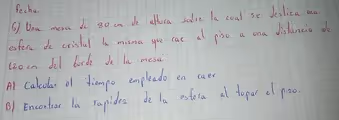 Fecha.
6) Una mesa de 80 cm de altura sobre la cual se desliza una
esfera de cristal la misma que cae al piso a una distancia de
120 cm del borde de la mesa.
A) Calcular el tiempo empleado en caer
B) Encontrar la rapidez de la esfera al topar el piso.